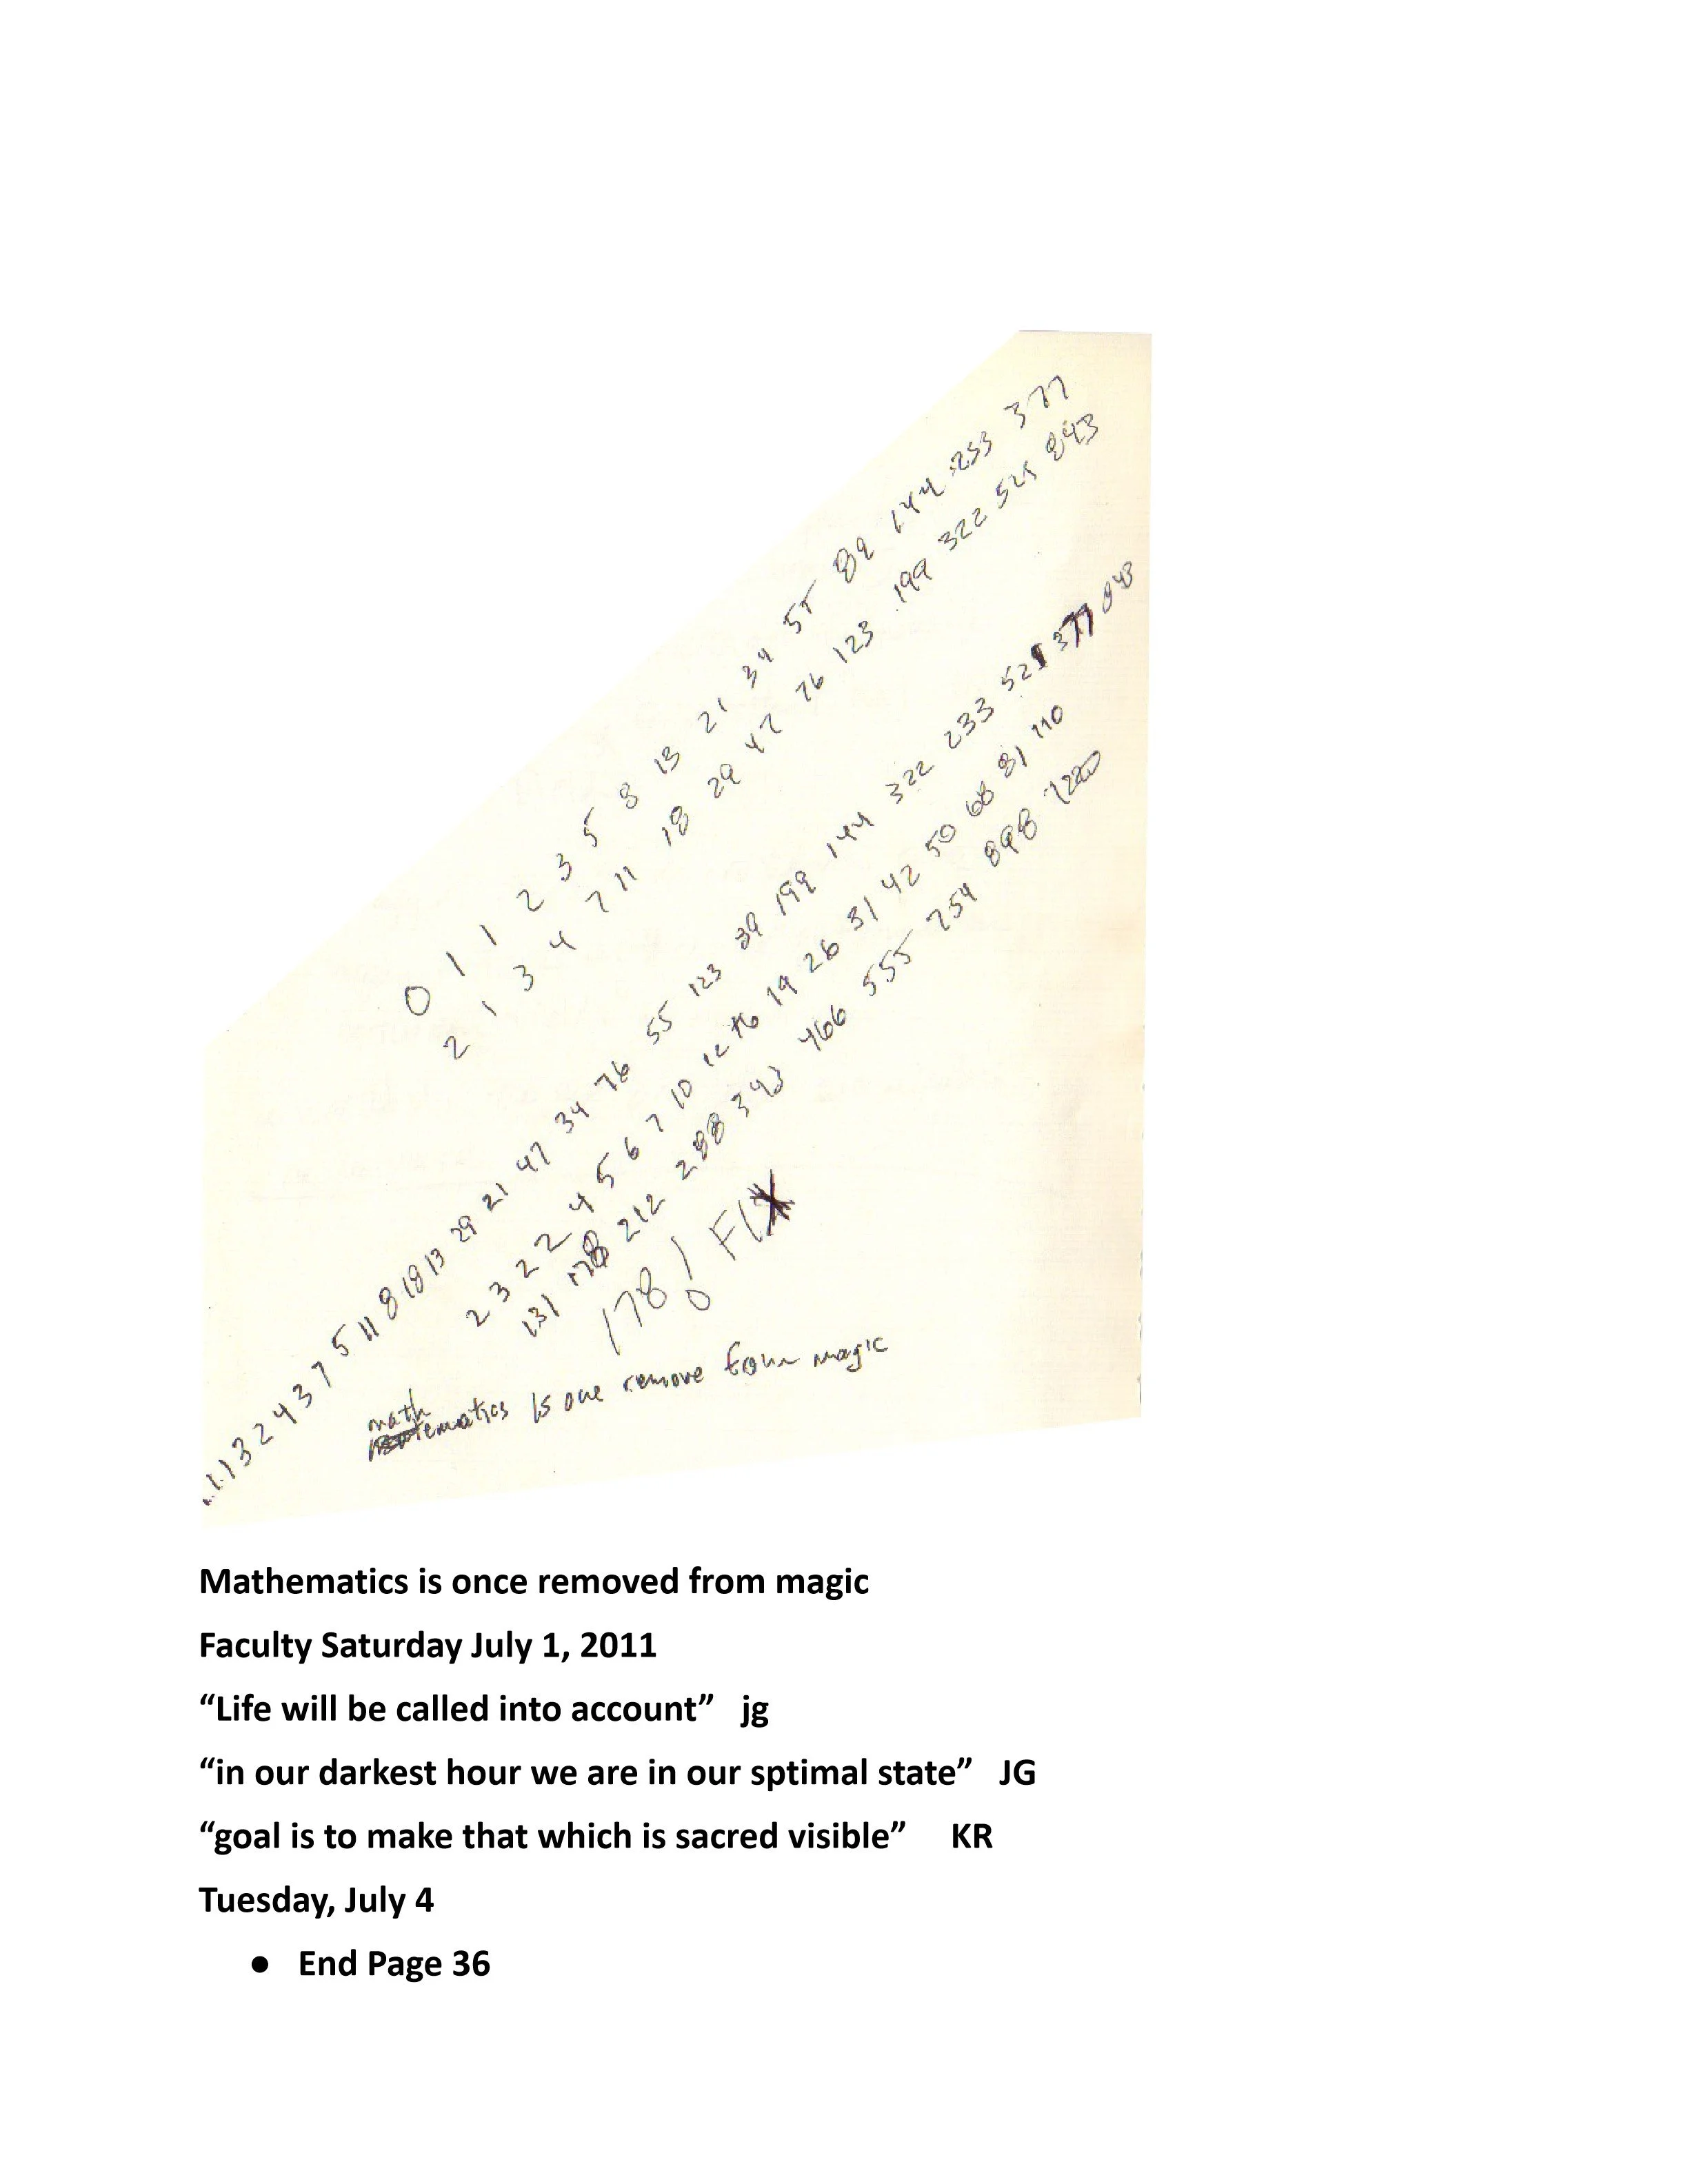 0 1 1 2 3 5 8 13 21 34 55 89 144 253 377
2 1 3 4 7 11 18 29 47 76 123 199 322 525 843
1 1 3 2 4 3 7 5 11 8 18 13 29 21 47 34 76 55 123 89 199 144 322 233 521 377 843
2 3 2 2 4 5 6 7 10 12 16 19 26 31 42 50 68 81 110
131 178 212 288 343 466 555 754 898 1220
178 !
0
math
tematics is one remove from magic
Mathematics is once removed from magic
Faculty Saturday July 1, 2011
“Life will be called into account” jg
“in our darkest hour we are in our sptimal state” JG
“goal is to make that which is sacred visible” KR
Tuesday, July 4
● End Page 36